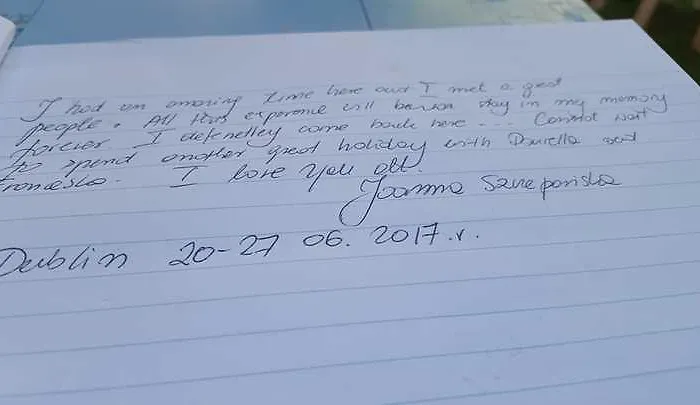 I had an amazing time here and I met a great
people. All this experience will stay in my memory
forever I defenetley come back here ... Cannot wait
to spend another great holiday with Daniella and
Francesko. I love you all.
Joanna Szczepańska
Dublin 20-27 06. 2017.r.